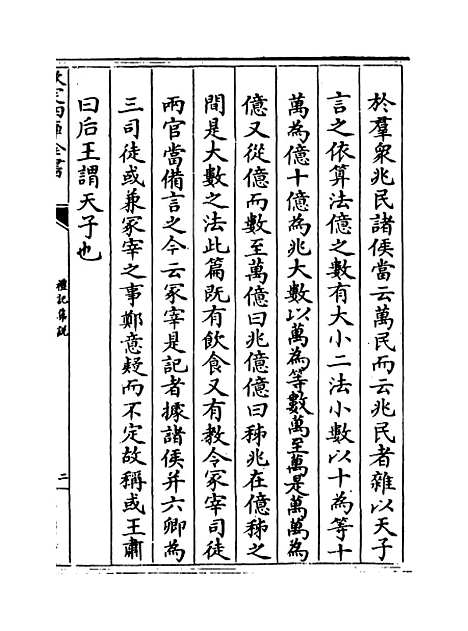 於羣衆兆民諸侯當云萬民而云兆民者雜以天子
言之依算法億之數有大小二法小數以十為等十
萬為億十億為兆大數以萬為等數萬至萬是萬萬為
億又從億而數至萬億曰兆億億曰秭兆在億秭之
間是大數之法此篇既有飲食又有教令冢宰司徒
兩官當備言之今云冢宰是記者據諸侯并六卿為
三司徒或兼冢宰之事鄭意疑而不定故稱或王肅
曰后王謂天子也
禮記集說
二